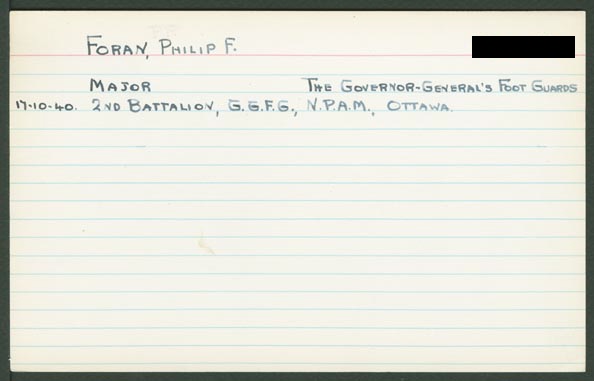 FORAN, PHILIP F.
MAJOR THE GOVERNOR-GENERAL'S FOOT GUARDS
17-10-40. 2ND BATTALION, G.G.F.G., N.P.A.M., OTTAWA.